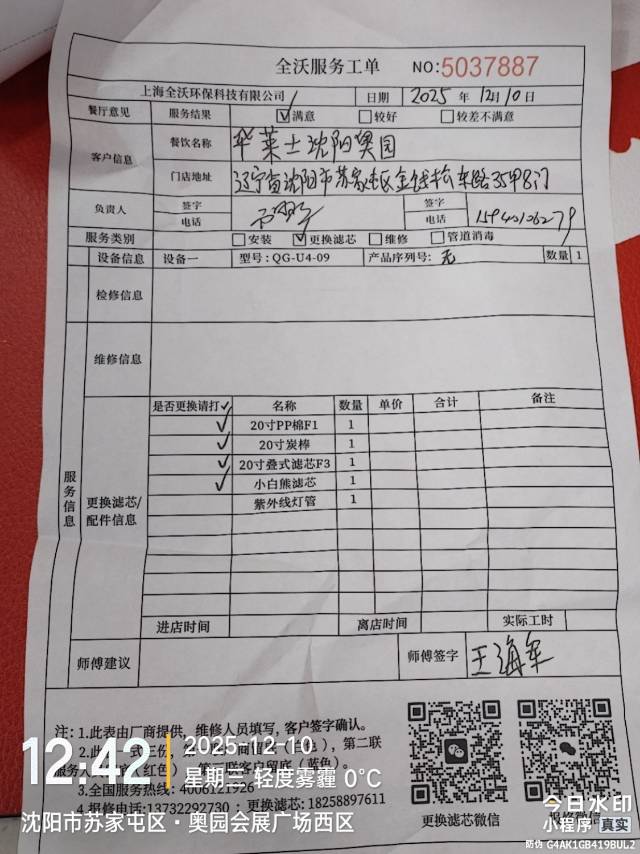 全沃服务工单 NO:5037887
上海全沃环保科技有限公司 日期 2025 年 12月10日
餐厅意见 服务结果 ☑满意 □较好 □较差不满意
客户信息 餐饮名称 华莱士沈阳奥园
门店地址 辽宁省沈阳市苏家屯区金钱松东路35甲8门
负责人 签字 签字
电话 电话 15940106279
服务类别 □安装 ☑更换滤芯 □维修 □管道消毒
设备信息 设备一 型号:QG-U4-09 产品序列号: 无 数量 1
检修信息
维修信息
服务信息
更换滤芯/配件信息
是否更换请打✓ 名称 数量 单价 合计 备注
✓ 20寸PP棉F1 1
✓ 20寸炭棒 1
✓ 20寸叠式滤芯F3 1
✓ 小白熊滤芯 1
紫外线灯管 1
进店时间 离店时间 实际工时
师傅建议 师傅签字 王海军
注: 1.此表由厂商提供, 维修人员填写, 客户签字确认。
第二联
服务人 (红色) 第三联客户留底 (蓝色)。
3.全国服务热线: 4006121926
4.报修电话:13732292730 ; 更换滤芯: 18258897611
更换滤芯微信 报修微信
12:42 2025-12-10
星期三 轻度雾霾 0°C
沈阳市苏家屯区·奥园会展广场西区
今日水印
小程序 真实
防伪 G4AK1GB419BUL2